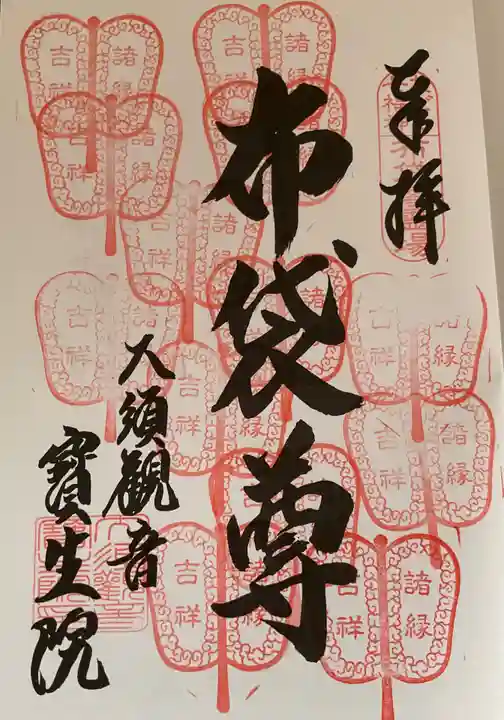 奉拝
布袋尊
大須観音
寳生院
諸縁
吉祥
諸縁
吉祥
吉祥
諸縁
吉祥
諸縁
吉祥
吉祥
諸縁
吉祥
吉祥
諸縁
吉祥
諸縁
吉祥